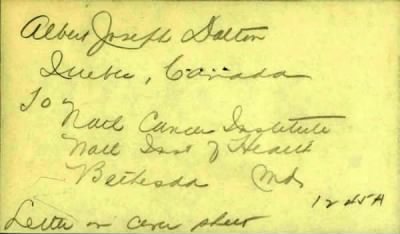 Albert Joseph Dalton
Quebec, Canada
To
Natl Cancer Institute
Natl Inst of Health
Bethesda Md.
1245A
Letter on cover sheet